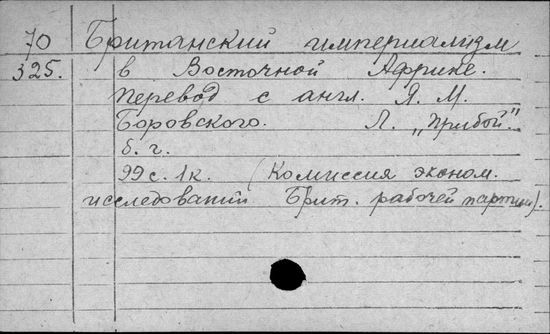 70 Британский империализм
325. в Восточной Африке.
Перевод с англ. Я. М.
Боровского. Л. „Прибой".
б. г.
99 с. 1 к. (Комиссия эконом.
исследований Брит. рабочей партии).